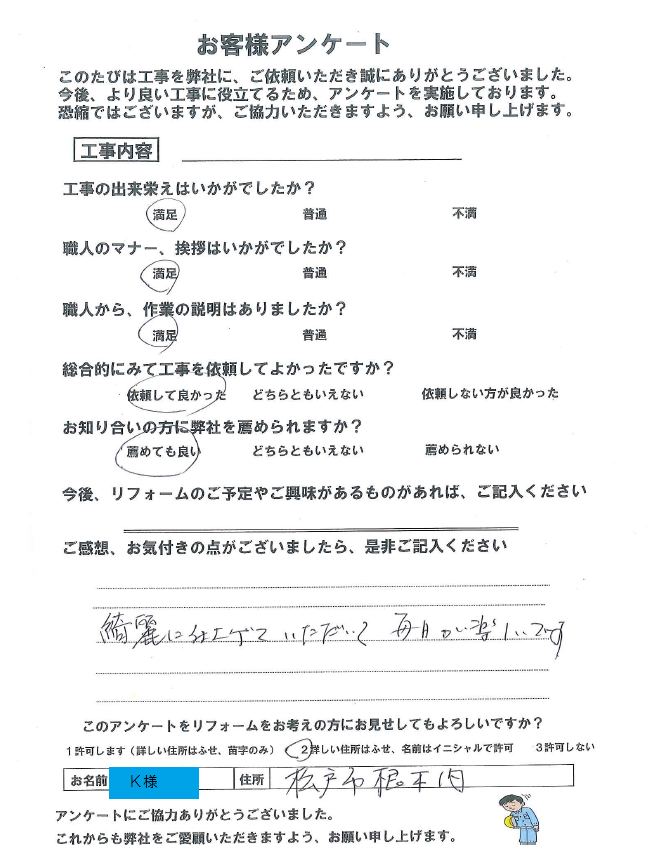 お客様アンケート
このたびは工事を弊社に、ご依頼いただき誠にありがとうございました。
今後、より良い工事に役立てるため、アンケートを実施しております。
恐縮ではございますが、ご協力いただきますよう、お願い申し上げます。
工事内容
工事の出来栄えはいかがでしたか？
満足 普通 不満
職人のマナー、挨拶はいかがでしたか？
満足 普通 不満
職人から、作業の説明はありましたか？
満足 普通 不満
総合的にみて工事を依頼してよかったですか？
依頼して良かった どちらともいえない 依頼しない方が良かった
お知り合いの方に弊社を薦められますか？
薦めても良い どちらともいえない 薦められない
今後、リフォームのご予定やご興味があるものがあれば、ご記入ください
ご感想、お気付きの点がございましたら、是非ご記入ください
綺麗に仕上げていただいて 毎日が楽しいです
このアンケートをリフォームをお考えの方にお見せしてもよろしいですか？
1許可します（詳しい住所はふせ、苗字のみ） 2詳しい住所はふせ、名前はイニシャルで許可 3許可しない
お名前 K様 住所 松戸市根木内
アンケートにご協力ありがとうございました。
これからも弊社をご愛顧いただきますよう、お願い申し上げます。